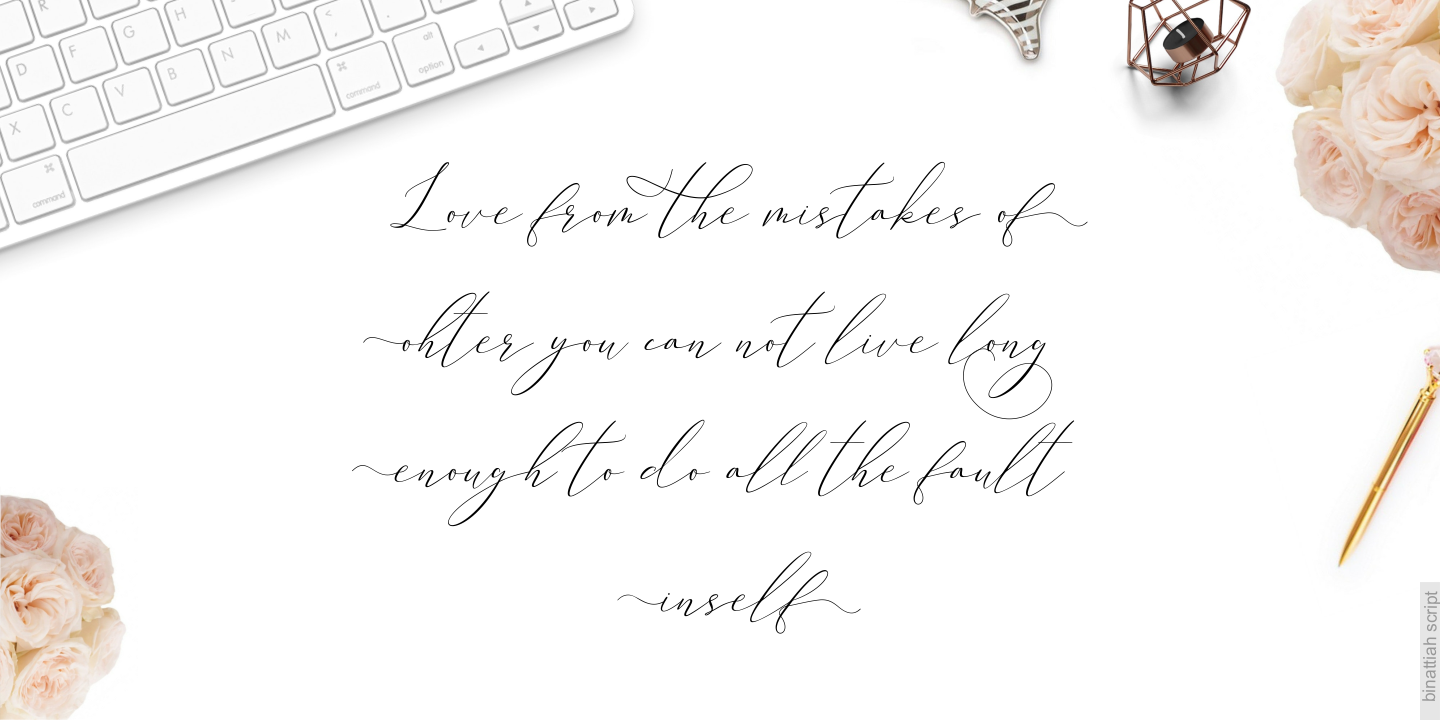 R
D
F
G
H
X
C
V
B
N
M
<
,
>
.
alt
option
⌘
command
⌘
command
Love from the mistakes of
ohter you can not live long
enough to do all the fault
inself
binattiah script